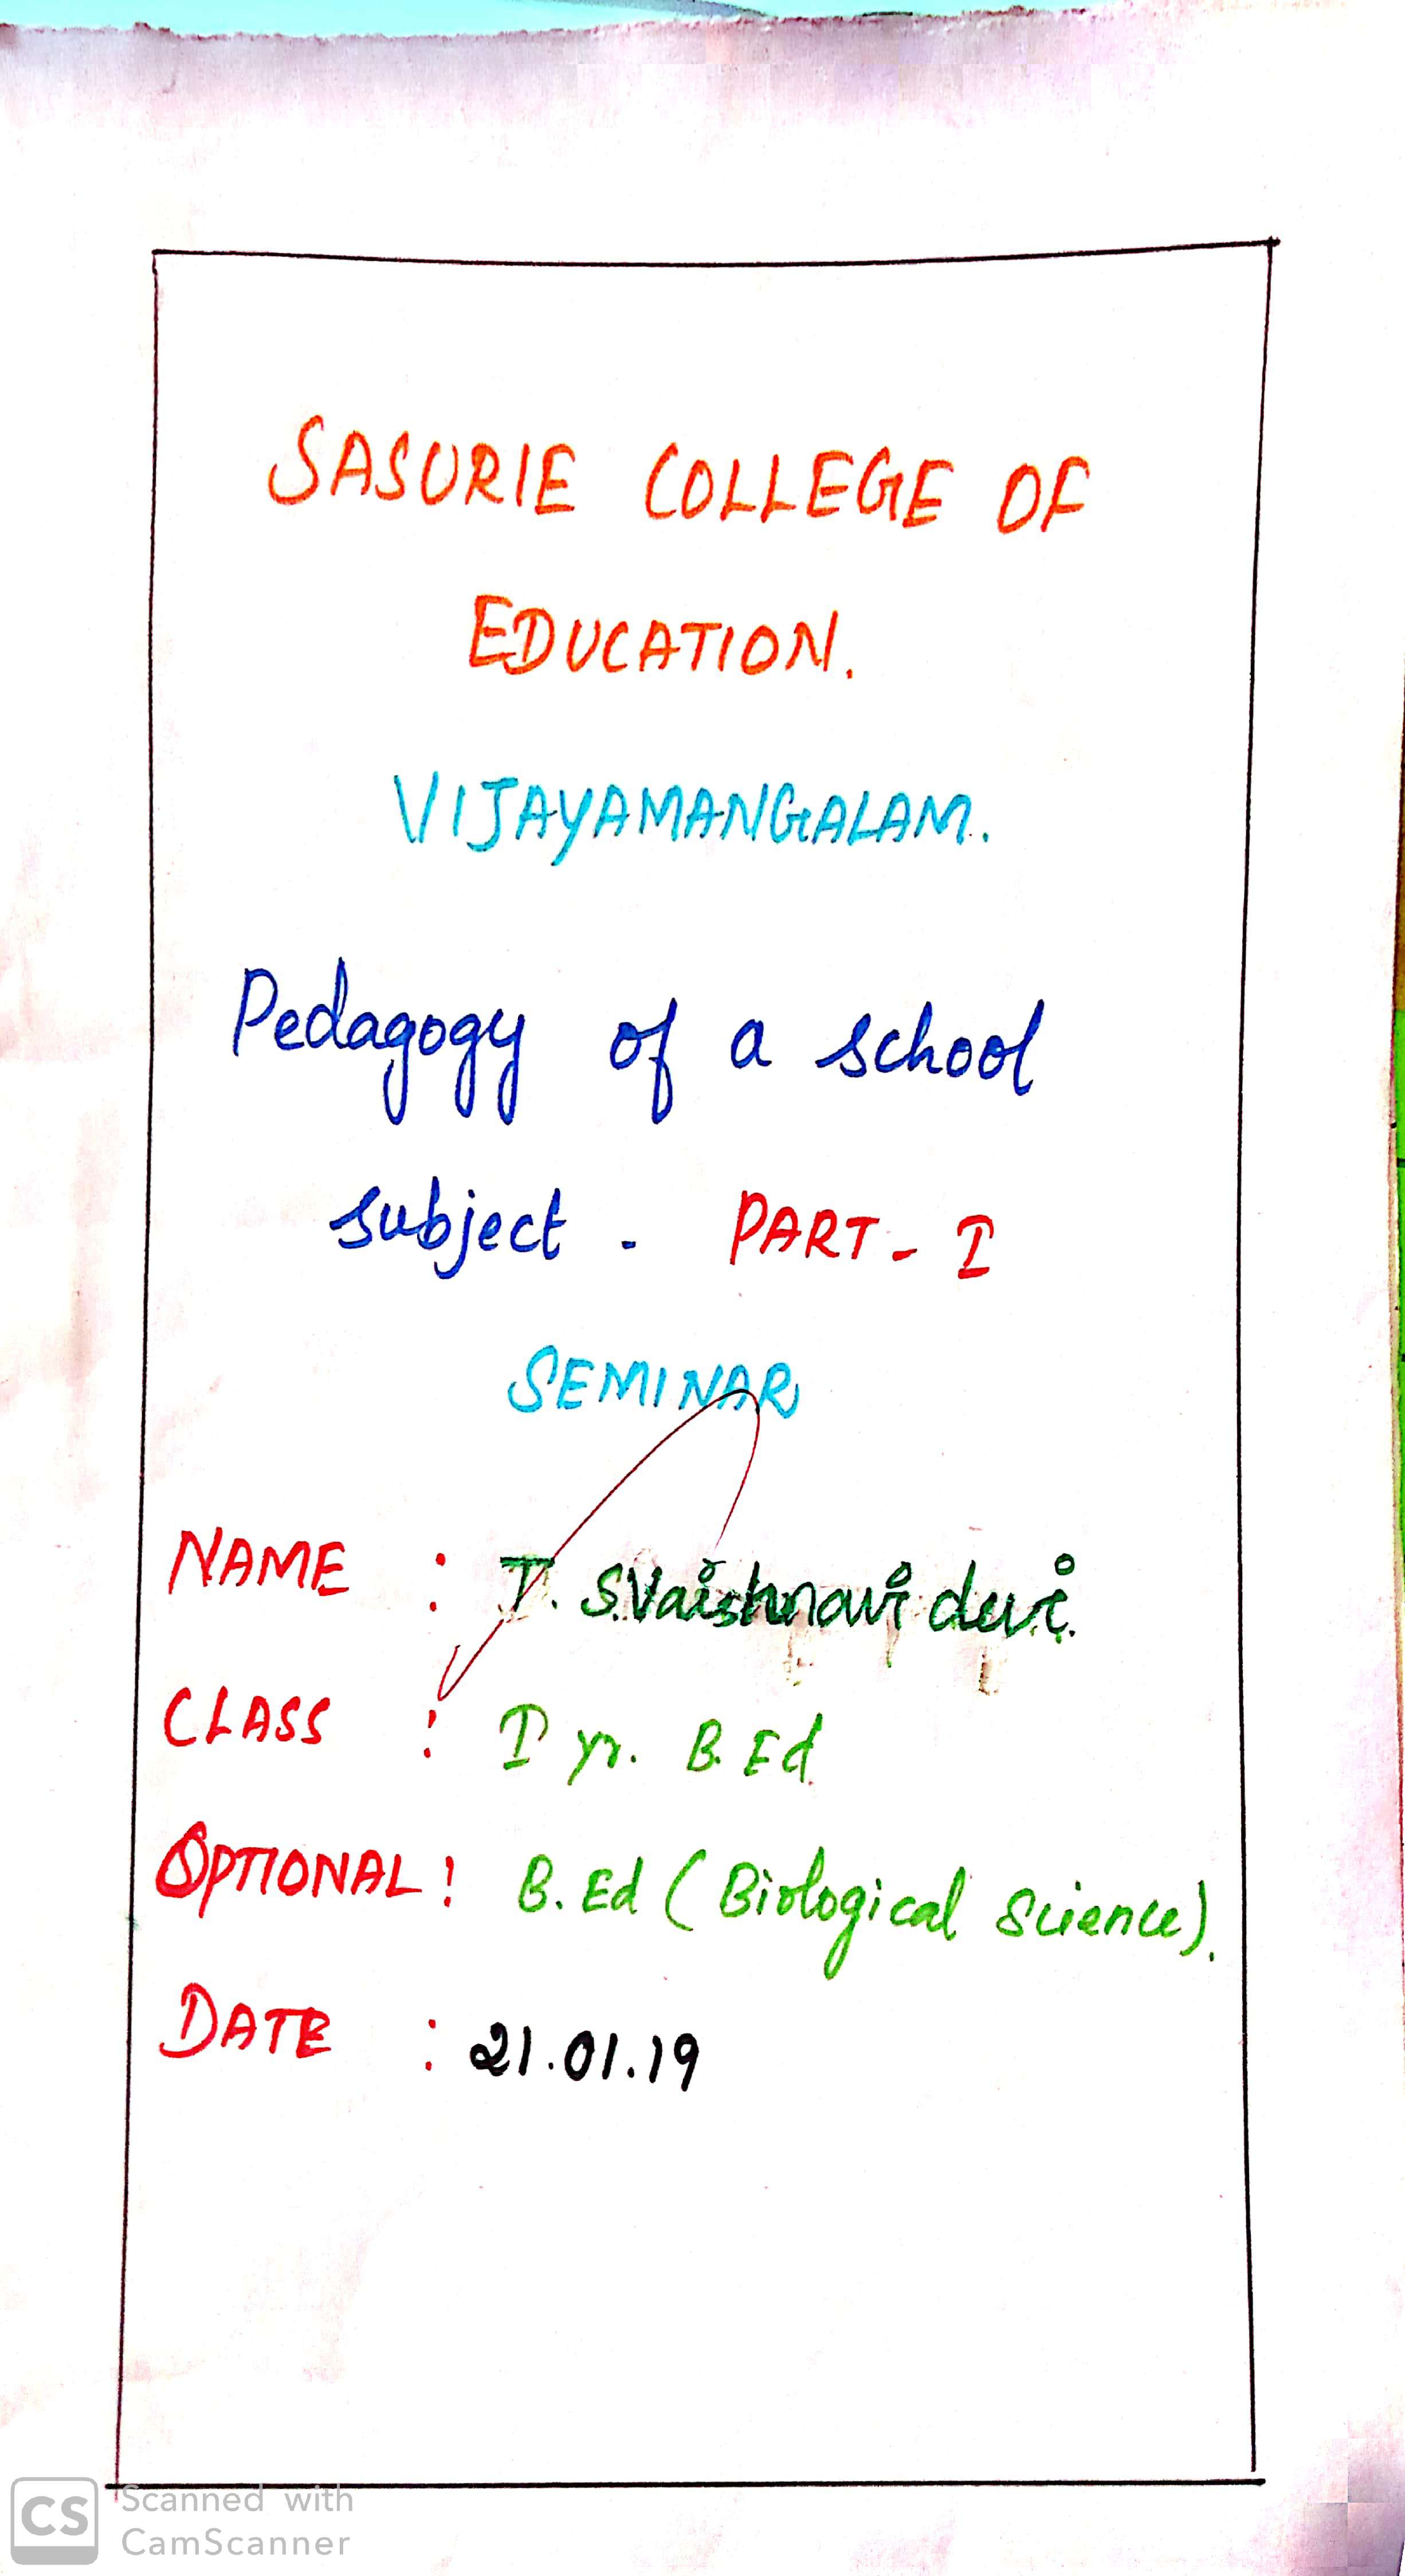 SASURIE COLLEGE OF
EDUCATION.
VIJAYAMANGALAM.
Pedagogy of a school
subject . PART - I
SEMINAR
NAME : T. S.Vaishnavi devi.
CLASS : I yr. B. Ed
OPTIONAL : B. Ed ( Biological Science).
DATE : 21.01.19
CS Scanned with
CamScanner